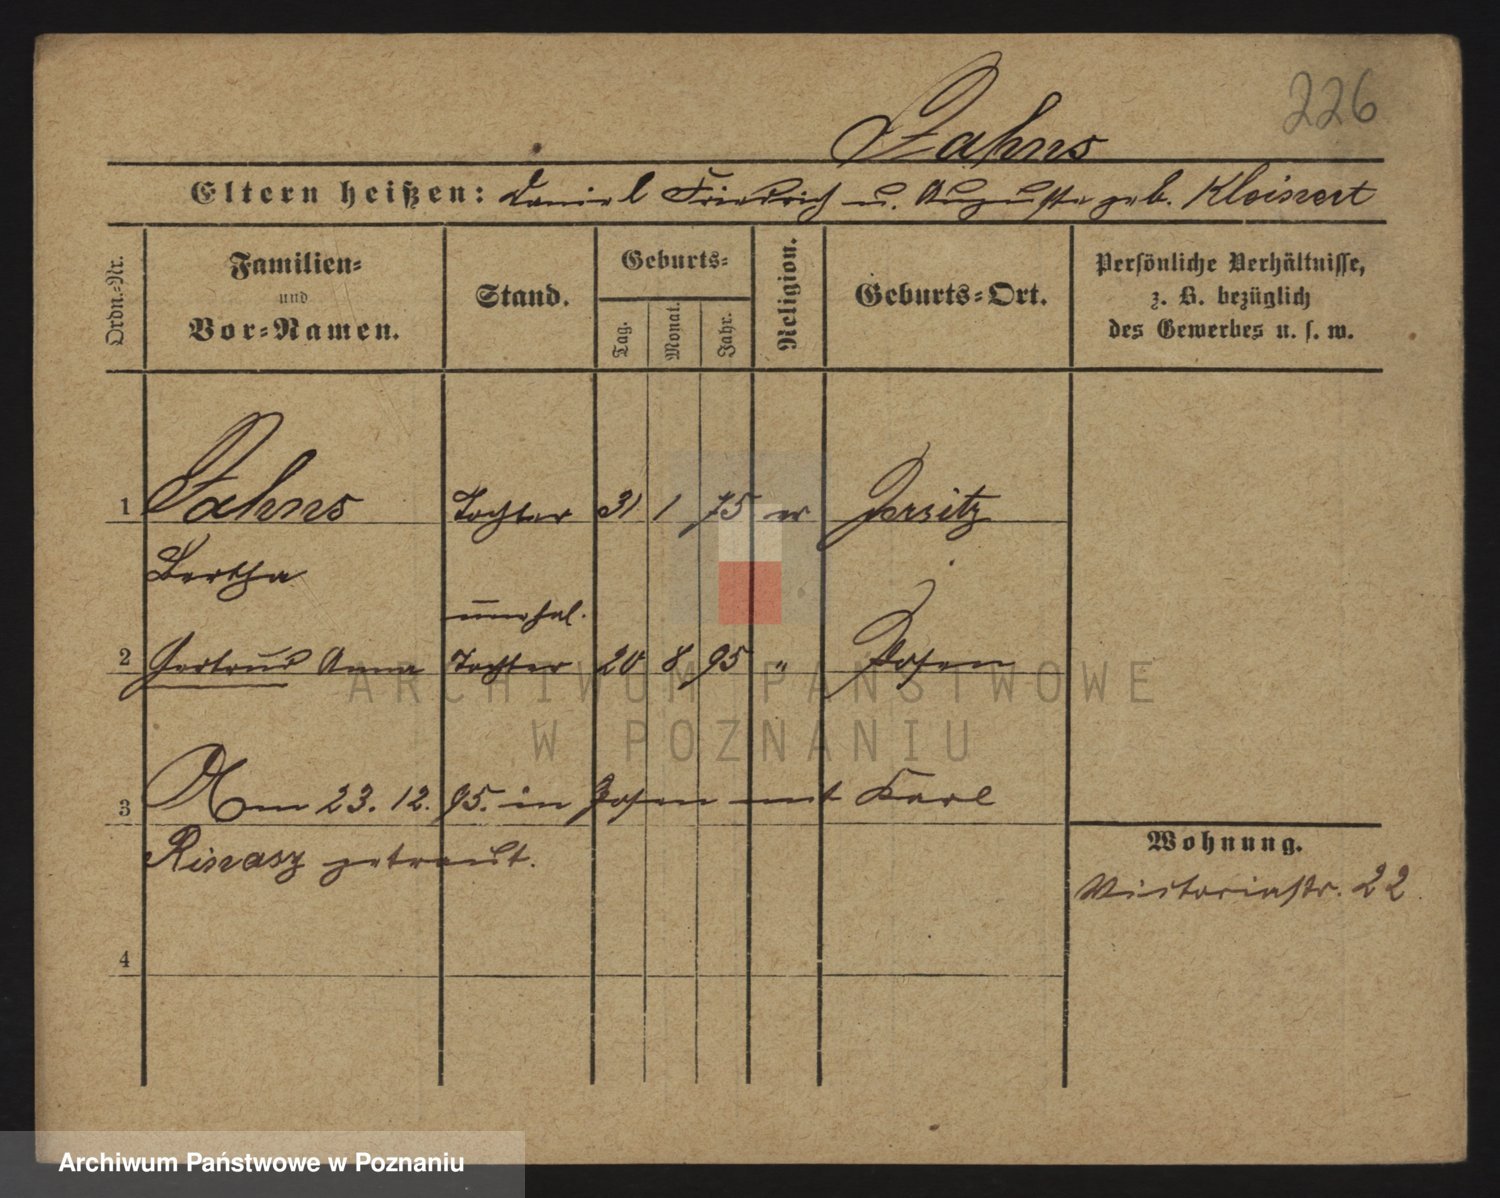 226
Jahns
Eltern heißen: Daniel Friedrich u. Auguste geb. Kleinert
Ordn.-Nr.
Familien- und Vor-Namen.
Stand.
Geburts-
Tag.
Monat.
Jahr.
Religion.
Geburts-Ort.
Persönliche Verhältnisse,
z. B. bezüglich
des Gewerbes u. s. w.
1 Jahns Tochter 31 1 75 ev Jersitz
Bertha
unehel.
2 Gertrud Anna Tochter 20 8 95 " Posen
3 Am 23. 12. 95. in Posen mit Karl
getraut.
Wohnung.
Victoriastr. 22
4
ARCHIWUM PAŃSTWOWE
W POZNANIU
Archiwum Państwowe w Poznaniu